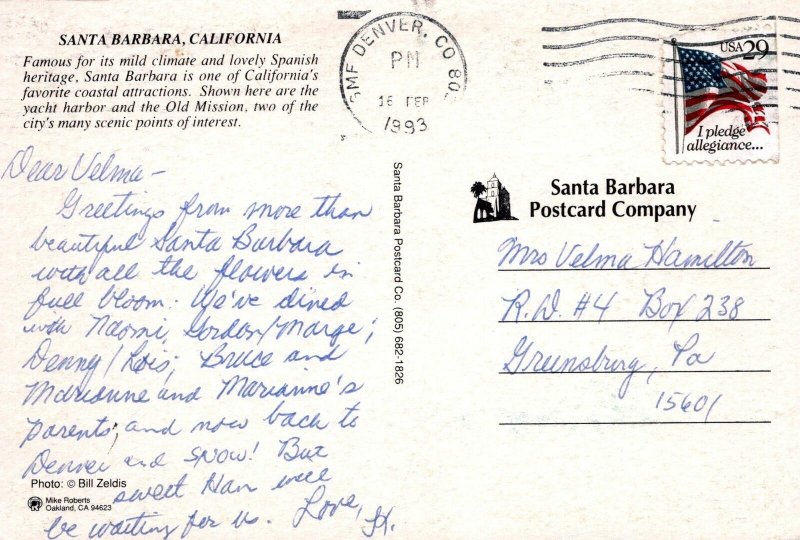 SANTA BARBARA, CALIFORNIA
Famous for its mild climate and lovely Spanish
heritage, Santa Barbara is one of California's
favorite coastal attractions. Shown here are the
yacht harbor and the Old Mission, two of the
city's many scenic points of interest.
DENVER, CO 80
PM
16 FEB
1993
USA 29
I pledge
allegiance...
Dear Velma -
Greetings from more than
beautiful Santa Barbara
with all the flowers in
full bloom. We've dined
with Naomi, Gordon/Marge;
Denny/Lois; Bruce and
Marianne and Marianne's
parents; and now back to
Denver and snow! But
sweet Han will
be waiting for us. Love,
Photo: © Bill Zeldis
Mike Roberts
Oakland, CA 94623
Santa Barbara Postcard Co. (805) 682-1826
Santa Barbara
Postcard Company
Mrs Velma Hamilton
R.D. #4 Box 238
Greensburg, Pa
15601